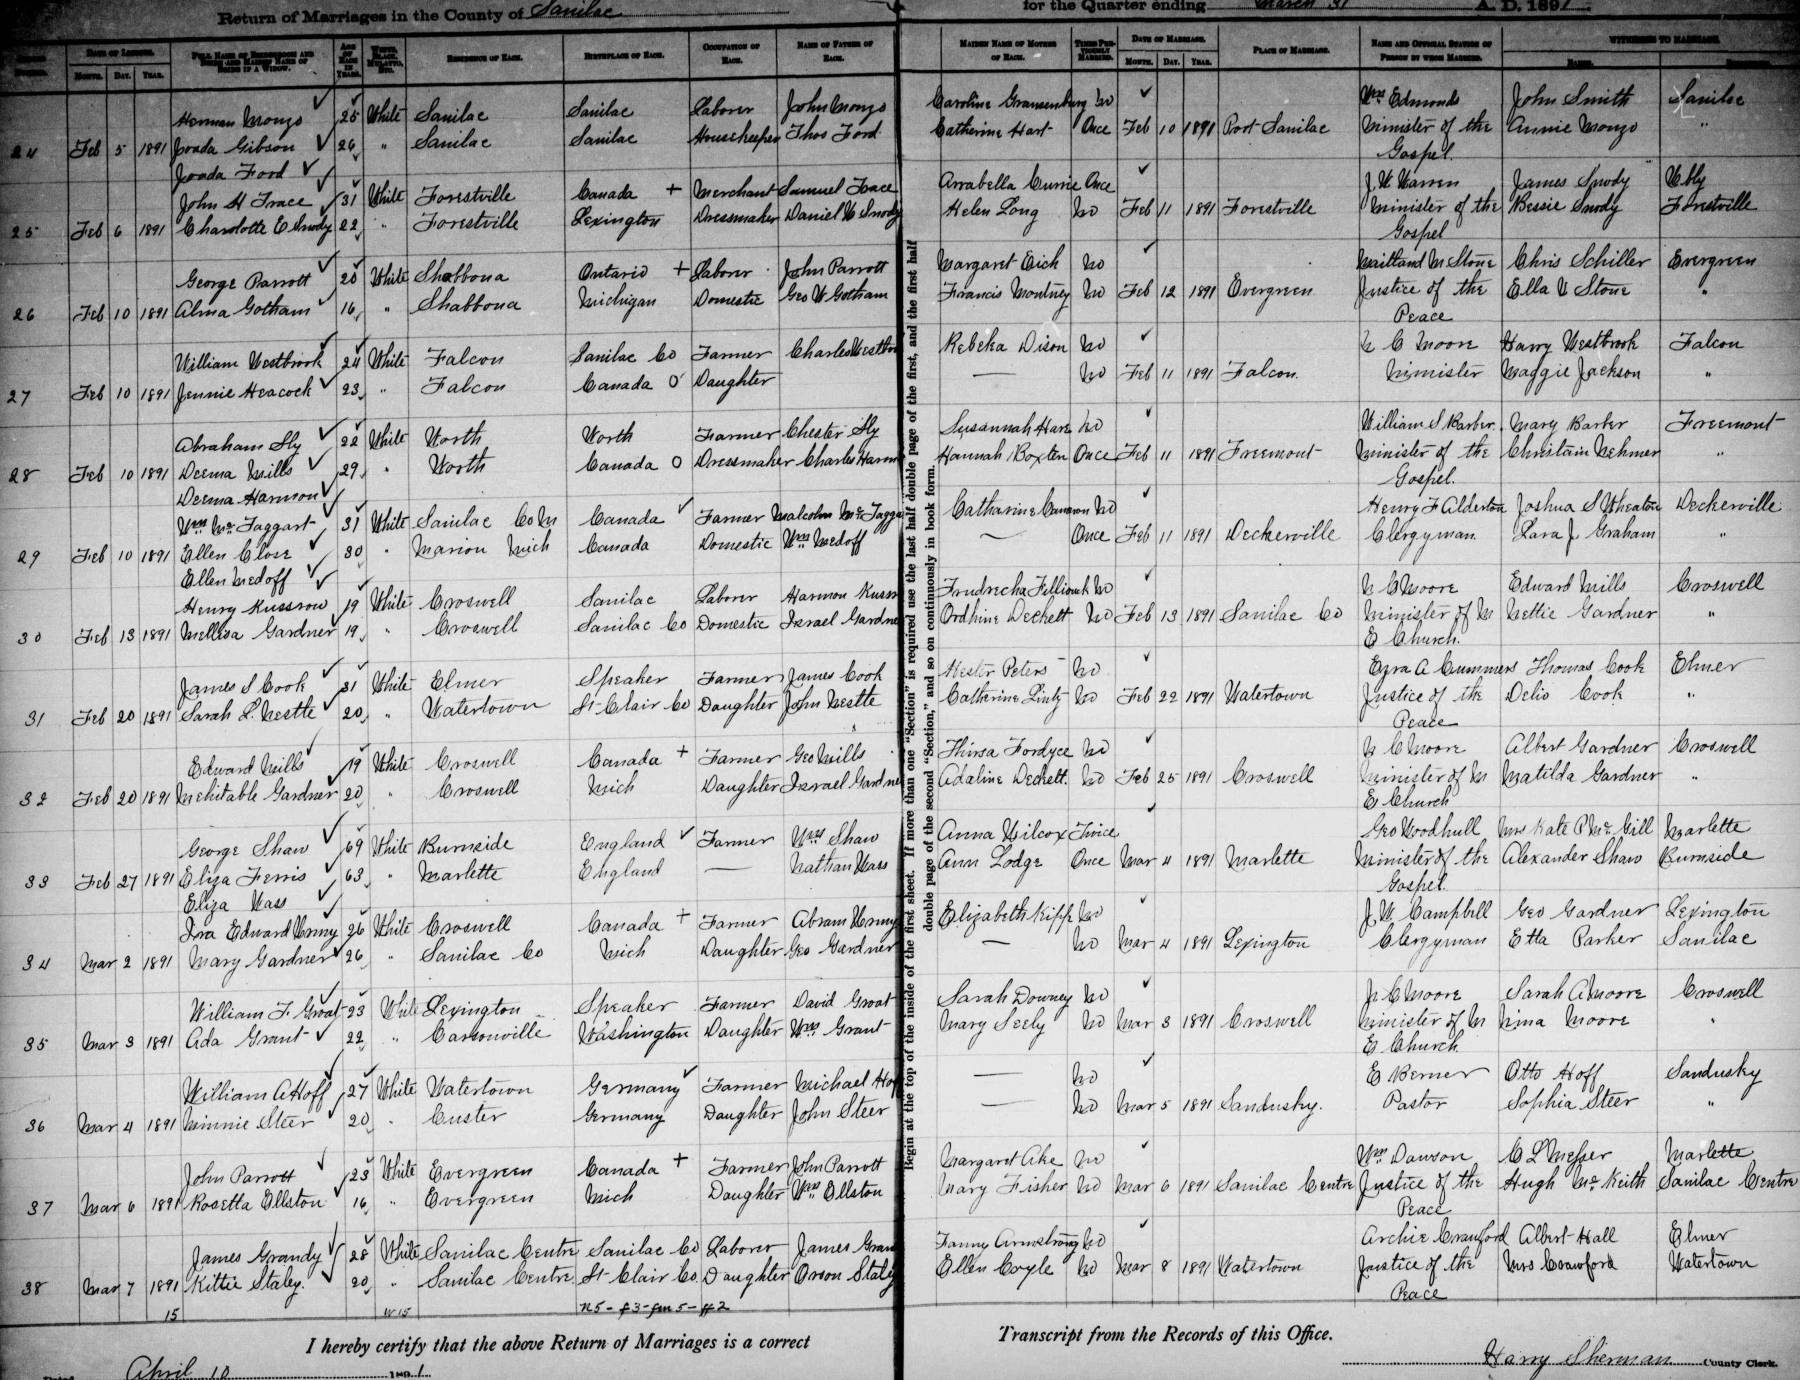 Return of Marriages in the County of Sanilac for the Quarter ending March 31 A. D. 1891
DATE OF LICENSE. AGE OF EACH IN YEARS. RESIDENCE OF EACH. BIRTHPLACE OF EACH. OCCUPATION OF EACH. NAME OF FATHER OF EACH. MAIDEN NAME OF MOTHER OF EACH. TIMES PREVIOUSLY MARRIED. DATE OF MARRIAGE. PLACE OF MARRIAGE. NAME AND OFFICIAL STATION OF PERSON BY WHOM MARRIED. WITNESSES TO MARRIAGE.
MONTH. DAY. YEAR. MONTH. DAY. YEAR. NAMES.
Herman Monzo 25 White Sanilac Sanilac Laborer John Monzo Caroline No Wm Edmonds John Smith Sanilac
24 Feb 5 1891 Joada Gibson 26 " Sanilac Sanilac Housekeeper Thos Ford Catherine Hart Once Feb 10 1891 Port Sanilac Minister of the Annie Monzo "
Joada Ford Gospel.
John H Trace 31 White Forestville Canada + Merchant Samuel Trace Arrabella Currie Once J. W Warren James Snody Ubly
25 Feb 6 1891 Charolotte E Snody 22 " Forestville Lexington Dressmaker Daniel W Snody Helen Long No Feb 11 1891 Forestville Minister of the Bessie Snody Forestville
Gospel
George Parrott 20 White Shabbona Ontario + Laborer John Parrott Margaret Eich No Maitland M Stone Chris Schiller Evergreen
26 Feb 10 1891 Alma Gotham 16 " Shabbona Michigan Domestic Geo W Gotham Francis Montney No Feb 12 1891 Evergreen Justice of the Ella V Stone "
Peace
William Westbrook 24 White Falcon Sanilac Co Farmer Charles Westbro Rebeka Dison No N C Moore Harry Westbrook Falcon
27 Feb 10 1891 Jennie Heacock 23 " Falcon Canada O Daughter — No Feb 11 1891 Falcon. Minister Maggie Jackson "
Abraham Sly 22 White Worth Worth Farmer Chester Sly Susannah Hare No William S Barber. Mary Barber Freemont
28 Feb 10 1891 Deema Mills 29 " Worth Canada O Dressmaker Charles Harm Hannah Boxten Once Feb 11 1891 Freemont Minister of the Christain Nehmer "
Deema Harmon Gospel.
Wm McTaggart 31 White Sanilac Co M Canada Farmer Malcolm McTagga Catharine Cameron No Henry F Alderton Joshua S Wheaton Deckerville
29 Feb 10 1891 Ellen Close 30 " Marion Mich Canada Domestic Wm Medoff — Once Feb 11 1891 Deckerville Clergyman. Lara J Graham "
Ellen Medoff
Henry Kussrow 19 White Croswell Sanilac Laborer Harmon Kussr No N C Moore Edward Mills Croswell
30 Feb 13 1891 Mellissa Gardner 19 " Croswell Sanilac Co Domestic Israel Gardne Ordhine Deckett No Feb 13 1891 Sanilac Co Minister of M Nettie Gardner "
E Church.
James S Cook 31 White Elmer Speaker Farmer James Cook Hester Peters No Ezra A Cummers Thomas Cook Elmer
31 Feb 20 1891 Sarah L. Nestte 20 " Watertown St Clair Co Daughter John Nestte Catherine Lintz No Feb 22 1891 Watertown Justice of the Delio Cook "
Peace
Edward Mills 19 White Croswell Canada + Farmer Geo Mills Thirsa Fordyce No N C Moore Albert Gardner Croswell
32 Feb 20 1891 Mehitable Gardner 20 " Croswell Mich Daughter Israel Gardne Adaline Deckett. No Feb 25 1891 Croswell Minister of M Matilda Gardner "
E Church
George Shaw 69 White Burnside England Farmer Wm Shaw Anna Wilcox Twice Geo Woodhull Mrs Kate P McGill Marlette
33 Feb 27 1891 Eliza Ferris 63 " Marlette England — Nathan Wass Ann Lodge Once Mar 4 1891 Marlette Minister of the Alexander Shaw Burnside
Eliza Wass Gospel.
Ira Edward Urmy 26 White Croswell Canada + Farmer Abram Urmy Elizabeth Kipp No J. W. Campbell Geo Gardner Lexington
34 Mar 2 1891 Mary Gardner 26 " Sanilac Co Mich Daughter Geo Gardner — No Mar 4 1891 Lexington Clergyman Etta Parker Sanilac
William F. Groat 23 White Lexington Speaker Farmer David Groat Sarah Downey No N C Moore Sarah A Moore Croswell
35 Mar 3 1891 Ada Grant 22 " Carsonville Washington Daughter Wm Grant Mary Seely No Mar 3 1891 Croswell Minister of M Nina Moore "
E Church.
William A Hoff 27 White Watertown Germany Farmer Michael Hof — No E Berner Otto Hoff Sandusky
36 Mar 4 1891 Minnie Steer 20 " Custer Germany Daughter John Steer — No Mar 5 1891 Sandusky. Pastor Sophia Steer "
John Parrott 23 White Evergreen Canada + Farmer John Parrott Margaret Ake No Wm Dawson C L Messer Marlette
37 Mar 6 1891 Rosetta Ellston 16 " Evergreen Mich Daughter Wm Ellston Mary Fisher No Mar 6 1891 Sanilac Centre Justice of the Hugh McKeith Sanilac Centre
Peace
James Grandy 28 White Sanilac Centre Sanilac Co Laborer James Gran Fanny Armstrong No Archie Crawford Albert Hall Elmer
38 Mar 7 1891 Kittie Staley. 20 " Sanilac Centre St Clair Co. Daughter Orson Staley Ellen Coyle No Mar 8 1891 Watertown Justice of the Mrs Crawford Watertown
Peace
15 W 15 N5 - f3 - fm 5 - #2
Begin at the top of the inside of the first sheet. If more than one "Section" is required use the last half double page of the first, and the first half
double page of the second "Section," and so on continuously in book form.
I hereby certify that the above Return of Marriages is a correct Transcript from the Records of this Office.
April 10 1891. Harry Sherman County Clerk.